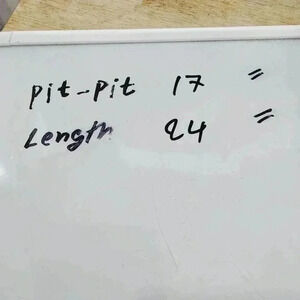 pit-pit 17 "
Length 24 "